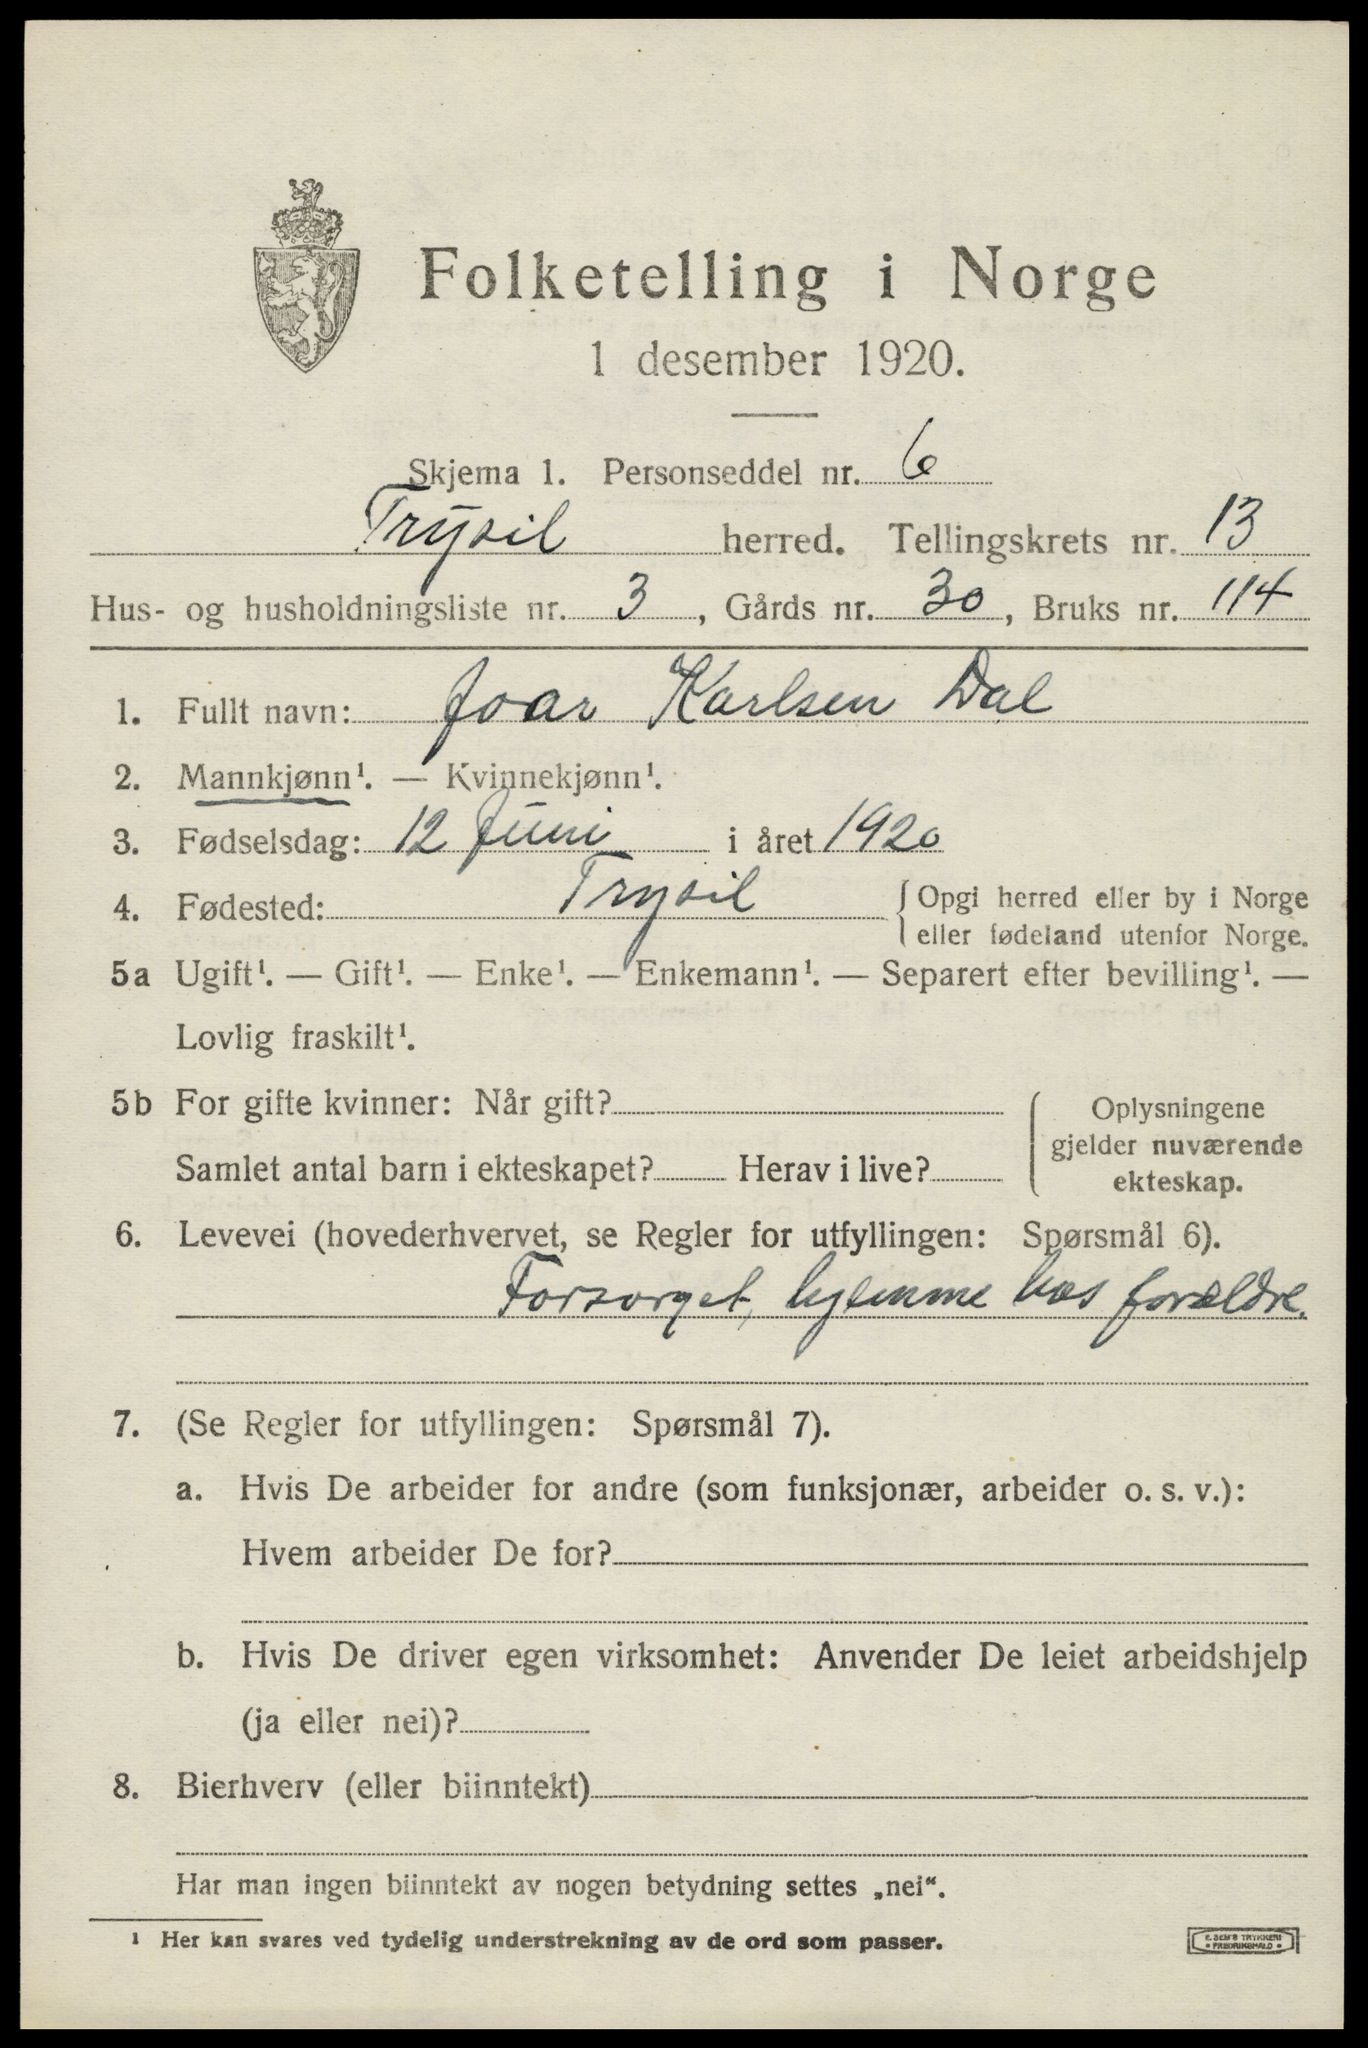 Folketelling i Norge
1 desember 1920.
Skjema 1. Personseddel nr. 6
Trysil herred. Tellingskrets nr. 13
Hus- og husholdningsliste nr. 3, Gårds nr. 30, Bruks nr. 114
1. Fullt navn: Joar Karlsen Dal
2. Mannkjønn¹. — Kvinnekjønn¹.
3. Fødselsdag: 12 Juni i året 1920
4. Fødested: Trysil { Opgi herred eller by i Norge
eller fødeland utenfor Norge.
5a Ugift¹. — Gift¹. — Enke¹. — Enkemann¹. — Separert efter bevilling¹. —
Lovlig fraskilt¹.
5b For gifte kvinner: Når gift?
Samlet antal barn i ekteskapet? Herav i live?
{ Oplysningene
gjelder nuværende
ekteskap.
6. Levevei (hovederhvervet, se Regler for utfyllingen: Spørsmål 6).
Forsorget, hjemme hos forældre.
7. (Se Regler for utfyllingen: Spørsmål 7).
a. Hvis De arbeider for andre (som funksjonær, arbeider o. s. v.):
Hvem arbeider De for?
b. Hvis De driver egen virksomhet: Anvender De leiet arbeidshjelp
(ja eller nei)?
8. Bierhverv (eller biinntekt)
Har man ingen biinntekt av nogen betydning settes „nei“.
¹ Her kan svares ved tydelig understrekning av de ord som passer.
E. SEM'S TRYKKERI
• FREDRIKSHALD •